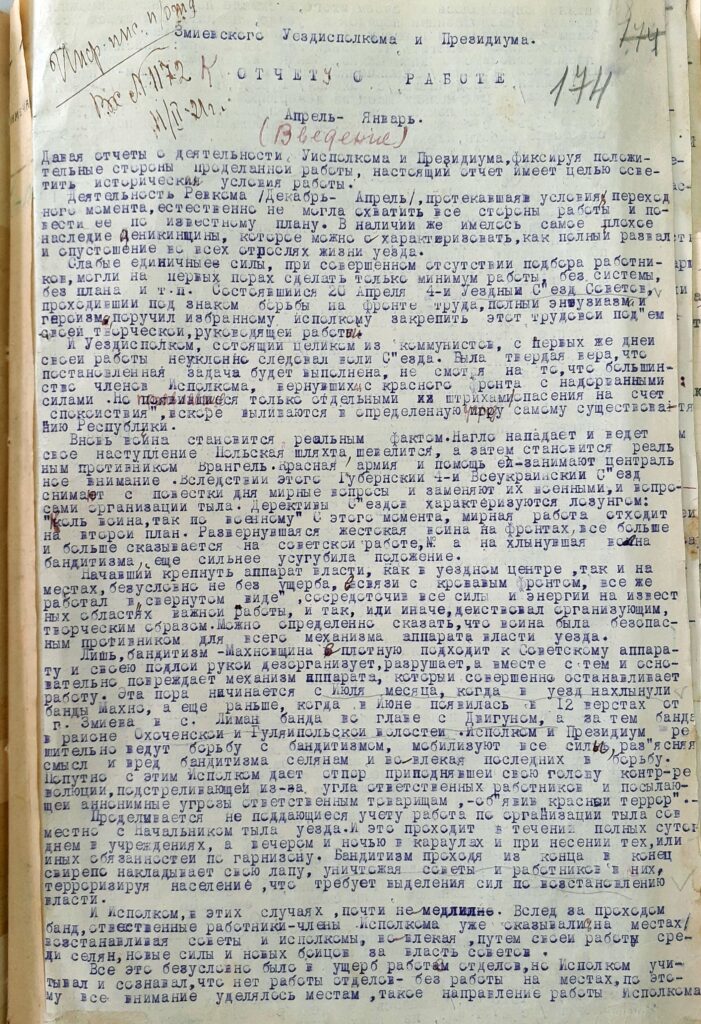 Инф-пис. п/отд
Вх № 1172
11/II-21г.
Змиевского Уездисполкома и Президиума.
К ОТЧЕТУ О РАБОТЕ
174
174
Апрель- Январь.
(Введение)
Давая отчеты о деятельности Уисполкома и Президиума,фиксируя положи-
тельные стороны проделанной работы, настоящий отчет имеет целью осве-
тить исторические условия работы.
Деятельность Ревкома /Декабрь- Апрель/,протекавшая в условиях переход
ного момента,естественно не могла охватить все стороны работы и по-
вести ее по известному плану. В наличии же имелось самое плохое
наследие Деникинщины, которое можно охарактеризовать,как полный развал
и опустошение во всех отрослях жизни уезда.
Слабые единичные силы, при совершенном отсутствии подбора работни-
ков,могли на первых порах сделать только минимум работы, без системы,
без плана и т.п. Состоявшийся 20 Апреля 4-й Уездный С"езд Советов,
проходивший под знаком борьбы на фронте труда,полный энтузиазма и
героизма,поручил избранному исполкому закрепить этот трудовой под"ем
своей творческой,руководящей работы.
И Уездисполком, сотоящий целиком из коммунистов, с первых же дней
своей работы неуклонно следовал воли С"езда. Была твердая вера,что
поставленная задача будет выполнена, не смотря на то,что большин-
ство членов Исполкома, вернувшихся с красного фронта с надорванными
силами .Но появившиеся только отдельными штрихами опасения на счет
спокойствия",вскоре выливаются в определенную угрозу самому существова-
нию Республики.
Вновь война становится реальным фактом.Нагло нападает и ведет
свое наступление Польская шляхта,шевелится, а затем становится реаль
ным противником Врангель.Красная армия и помощь ей-занимают централь
ное внимание .Вследствии этого Губернский 4-й Всеукраинский С"езд
снимает с повестки дня мирные вопросы и заменяют их военными,и вопро-
сами организации тыла. Дерективы С"ездов характеризуются лозунгом:
"Коль война,так по военному" С этого момента, мирная работа отходит
на второй план. Развернувшаяся жестокая война на фронтах,все больше
и больше сказывается на советской работе, а на хлынувшая волна
бандитизма, еще сильнее усугубила положение.
Начавший крепнуть аппарат власти, как в уездном центре ,так и на
местах,безусловно не без ущерба, в связи с кровавым фронтом, все же
работал в"свернутом виде" ,сосредоточив все силы и энергии на извест
ных областях важной работы, и так, или иначе,действовал организующим,
творческим образом.Можно определенно сказать,что война была безопас-
ным противником для всего механизма аппарата власти уезда.
Лишь,бандитизм -Махновщина вплотную подходит к Советскому аппара-
ту и своею подлой рукой дезорганизует,разрушает,а вместе с тем и осно-
вательно повреждает механизм аппарата, который совершенно останавливает
работу. Эта пора ничинается с Июля месяца, когда в уезд нахлынули
банды Махно, а еще раньше, когда в Июне появилась в 12 верстах от
г. Змиева в с. Лиман банда во главе с Двигуном, а за тем банда
в районе Охоченской и Гуляйпольской волостей .Исполком и Президиум ре
шительно ведут борьбу с бандитизмом, мобилизуют все силы, раз"ясняя
смысл и вред бандитизма селянам и вовлекая последних в борьбу.
Попутно с этим Исполком дает отпор приподнявшей свою голову контр-ре
волюции,подстреливающей из-за угла ответственных работников и посылаю-
щей аннонимные угрозы ответственным товарищам ,-об"явив красный террор".-
Проделывается не поддающиеся учету работа по организации тыла сов
местно с Начальником тыла уезда.И это проходит в течении полных суток
днем в учреждениях, а вечером и ночью в караулах и при несении тех,или
иных обязанностей по гарнизону. Бандитизм проходя из конца в конец
свирепо накладывает свою лапу, уничтожая советы и работников в них,
терроризируя население ,что требует выделения сил по восстановлению
власти.
И Исполком,в этих случаях ,почти не медлил. Вслед за проходом
банд,отвественные работники-члены Исполкома уже оказывались на местах/
восстанавливая советы и исполкомы, вовлекая ,путем своей работы сре-
ди селян,новые силы и новых бойцов за власть советов .
Все это безусловно было в ущерб работам отделов,но Исполком учи-
тывал и сознавал,что нет работы отделов- без работы на местах,по это-
му все внимание уделялось местам ,такое направление работы Исполкома